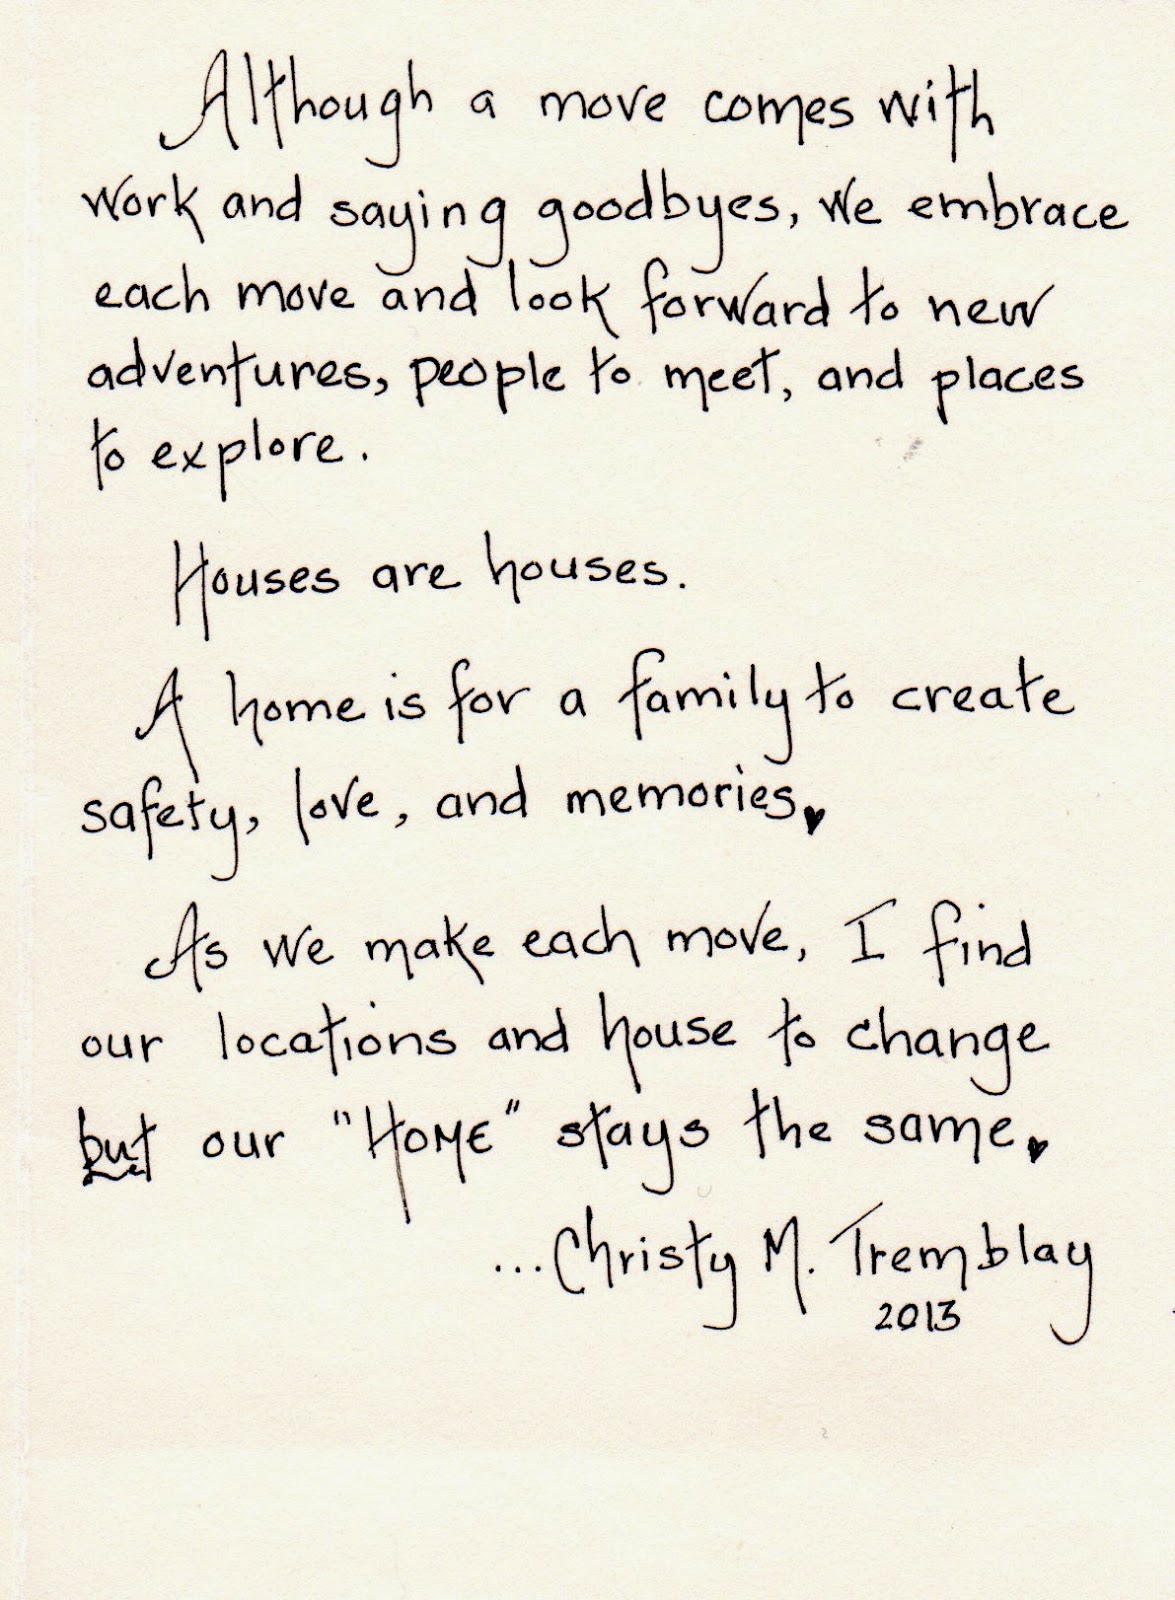 Although a move comes with
work and saying goodbyes, we embrace
each move and look forward to new
adventures, people to meet, and places
to explore.
Houses are houses.
A home is for a family to create
safety, love, and memories.
As we make each move, I find
our locations and house to change
but our "HOME" stays the same.
...Christy M. Tremblay
2013